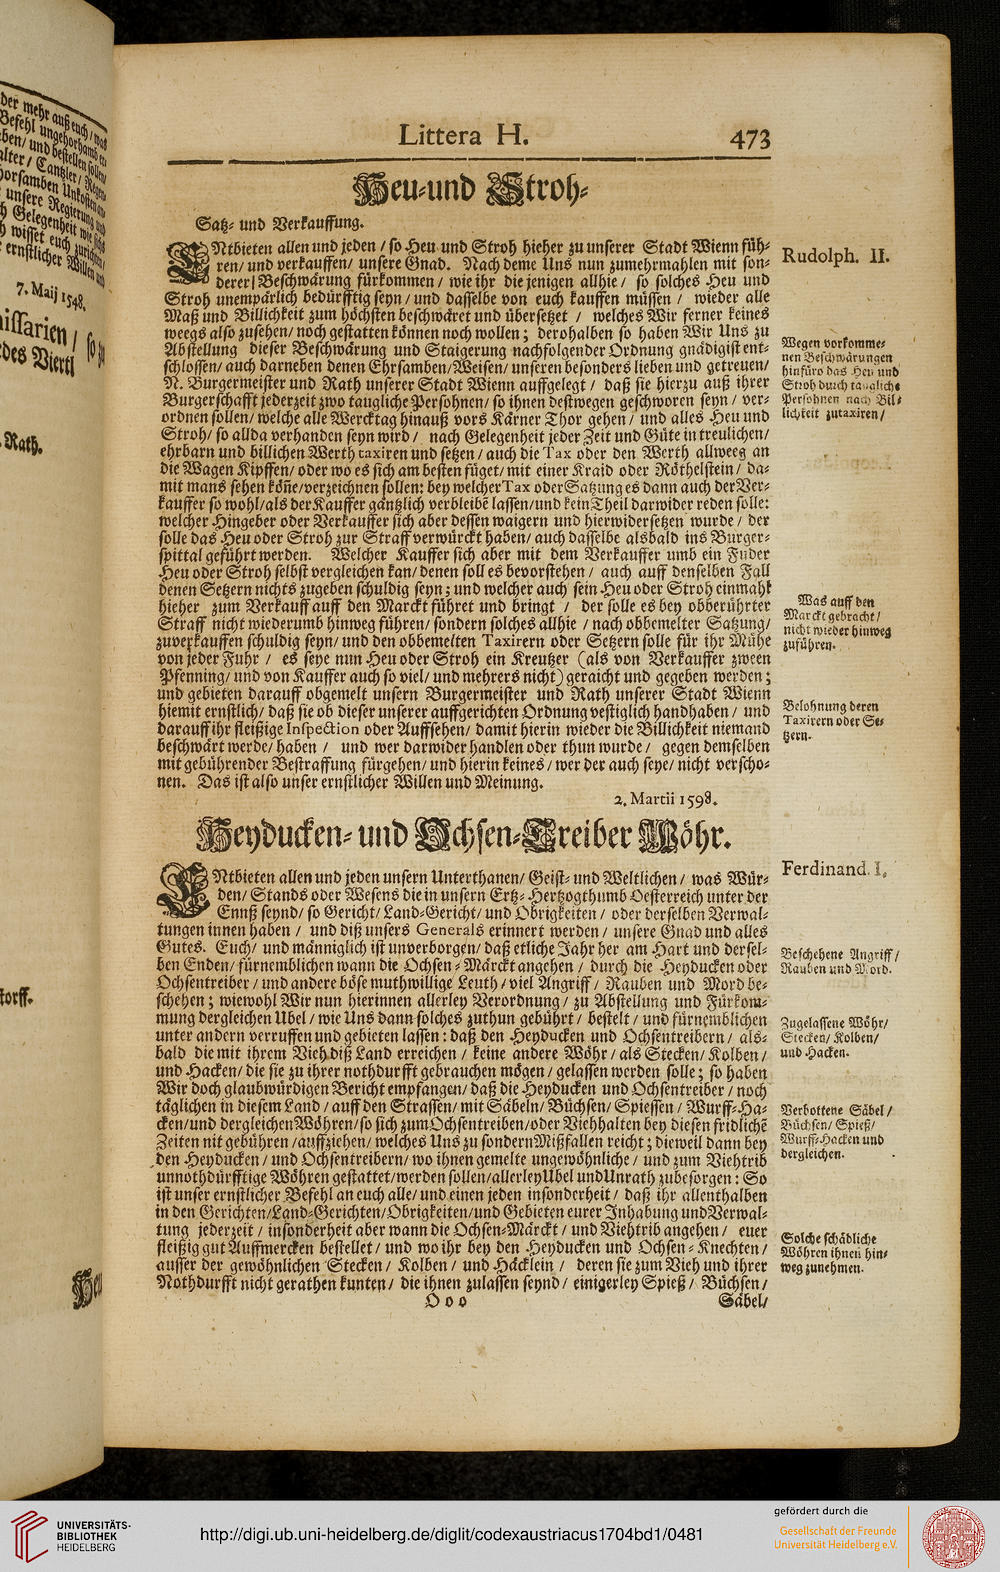 Littera H. 473
Heu-und Stroh-
Satz- und Verkauffung.
ENtbieten allen und jeden / so Heu und Stroh hieher zu unserer Stadt Wienn füh-
ren/ und verkauffen/ unsere Gnad. Nach deme Uns nun zumehrmahlen mit son-
derer Beschwärung fürkommen / wie ihr die jenigen allhie / so solches Heu und
Stroh unempärlich bedürfftig seyn / und dasselbe von euch kauffen müssen / wieder alle
Maß und Billichkeit zum höchsten beschwäret und übersetzet / welches Wir ferner keines
weegs also zusehen/ noch gestatten können noch wollen ; derohalben so haben Wir Uns zu
Abstellung dieser Beschwärung und Staigerung nachfolgender Ordnung gnädigist ent-
schlossen/ auch darneben denen Ehrsamben/Weisen/ unseren besonders lieben und getreuen/
N. Burgermeister und Rath unserer Stadt Wienn auffgelegt / daß sie hierzu auß ihrer
Burgerschafft jederzeit zwo taugliche Persohnen/ so ihnen destwegen geschworen seyn / ver-
ordnen sollen/ welche alle Wercktag hinauß vors Kärner Thor gehen / und alles Heu und
Stroh/ so allda verhanden seyn wird / nach Gelegenheit jeder Zeit und Güte in treulichen/
ehrbarn und billichen Werth taxiren und setzen / auch die Tax oder den Werth allweeg an
die Wagen Kipffen/ oder wo es sich am besten füget/ mit einer Kraid oder Röthelstein / da-
mit mans sehen kön̄e/verzeichnen sollen: bey welcher Tax oder Satzung es dann auch der Ver-
kauffer so wohl/als der Kauffer gäntzlich verbleibē lassen/und kein Theil darwider reden solle:
welcher Hingeber oder Verkauffer sich aber dessen waigern und hierwider setzen wurde / der
solle das Heu oder Stroh zur Straff verwürckt haben/ auch dasselbe alsbald ins Burger-
spittal geführt werden. Welcher Kauffer sich aber mit dem Verkauffer umb ein Fuder
Heu oder Stroh selbst vergleichen kan/ denen soll es bevorstehen / auch auff denselben Fall
denen Setzern nichts zugeben schuldig seyn ; und welcher auch sein Heu oder Stroh einmahl
hieher zum Verkauff auff den Marckt führet und bringt / der solle es bey obberührter
Straff nicht wiederumb hinweg führen/ sondern solches allhie / nach obbemelter Satzung/
zuverkauffen schuldig seyn/ und den obbemelten Taxirern oder Setzern solle für ihr Mühe
von jeder Fuhr / es seye nun Heu oder Stroh ein Kreutzer (als von Verkauffer zween
Pfenning/ und von Kauffer auch so viel/ und mehrers nicht) geraicht und gegeben werden ;
und gebieten darauff obgemelt unsern Burgermeister und Rath unserer Stadt Wienn
hiemit ernstlich/ daß sie ob dieser unserer auffgerichten Ordnung vestiglich handhaben / und
darauff ihr fleißige Inspection oder Auffsehen/ damit hierin wieder die Billichkeit niemand
beschwärt werde/ haben / und wer darwider handlen oder thun wurde / gegen demselben
mit gebührender Bestraffung fürgehen/ und hierin keines / wer der auch seye/ nicht verscho-
nen. Das ist also unser ernstlicher Willen und Meinung.
2. Martii 1598.
Rudolph. II.
Wegen vorkomme-
nen Beschwärungen
hinfüro das Heu und
Stroh durch taugliche
Persohnen nach Bil-
lichkeit zutaxiren/
Was auff den
Marckt gebracht /
nicht wieder hinweg
zuführen.
Belohnung deren
Taxirern oder Se-
tzern.
Heyducken- und Ochsen-Treiber Wöhr.
ENtbieten allen und jeden unsern Unterthanen/ Geist- und Weltlichen / was Wür-
den/ Stands oder Wesens die in unsern Ertz- Hertzogthumb Oesterreich unter der
Ennß seynd/ so Gericht/ Land-Gericht/ und Obrigkeiten / oder derselben Verwal-
tungen innen haben / und diß unsers Generals erinnert werden / unsere Gnad und alles
Gutes. Euch/ und männiglich ist unverborgen/ daß etliche Jahr her am Hart und dersel-
ben Enden/ fürnemblichen wann die Ochsen-Märckt angehen / durch die Heyducken oder
Ochsentreiber / und andere böse muthwillige Leuth / viel Angriff / Rauben und Mord be-
schehen ; wiewohl Wir nun hierinnen allerley Verordnung / zu Abstellung und Fürkom-
mung dergleichen Ubel / wie Uns dann solches zuthun gebührt / bestelt / und fürnemblichen
unter andern verruffen und gebieten lassen : daß den Heyducken und Ochsentreibern / als-
bald die mit ihrem Vieh diß Land erreichen / keine andere Wöhr / als Stecken/ Kolben /
und Hacken/ die sie zu ihrer nothdurfft gebrauchen mögen / gelassen werden solle ; so haben
Wir doch glaubwürdigen Bericht empfangen/ daß die Heyducken und Ochsentreiber / noch
täglichen in diesem Land / auff den Strassen/ mit Säbeln/ Büchsen/ Spiessen / Wurff-Ha-
cken/und dergleichen Wöhren/ so sich zum Ochsentreiben/oder Viehhalten bey diesen fridlichē
Zeiten nit gebühren / auffziehen/ welches Uns zu sondern Mißfallen reicht ; dieweil dann bey
den Heyducken / und Ochsentreibern/ wo ihnen gemelte ungewöhnliche / und zum Viehtrib
unnothdürfftige Wöhren gestattet/werden sollen/allerley Ubel und Unrath zubesorgen : So
ist unser ernstlicher Befehl an euch alle/ und einen jeden insonderheit / daß ihr allenthalben
in den Gerichten/Land-Gerichten/Obrigkeiten/und Gebieten eurer Inhabung und Verwal-
tung jederzeit / insonderheit aber wann die Ochsen-Märckt / und Viehtrib angehen / euer
fleißig gut Auffmercken bestellet / und wo ihr bey den Heyducken und Ochsen-Knechten /
ausser der gewöhnlichen Stecken / Kolben / und Häcklein / deren sie zum Vieh und ihrer
Nothdurfft nicht gerathen kunten / die ihnen zulassen seynd / einigerley Spieß / Büchsen /
Ooo Säbel/
Ferdinand. I.
Beschehene Angriff /
Rauben und Mord.
Zugelassene Wöhr/
Stecken/ Kolben/
und Hacken.
Verbottene Säbel /
Büchsen/ Spieß/
Wurff-Hacken und
dergleichen.
Solche schädliche
Wöhren ihnen hin-
weg zunehmen.
7. Maij 1548.
des Viertl
Rath.
torff.
Heu
UNIVERSITÄTS-
BIBLIOTHEK
HEIDELBERG
http://digi.ub.uni-heidelberg.de/diglit/codexaustriacus1704bd1/0481
gefördert durch die
Gesellschaft der Freunde
Universität Heidelberg e.V.